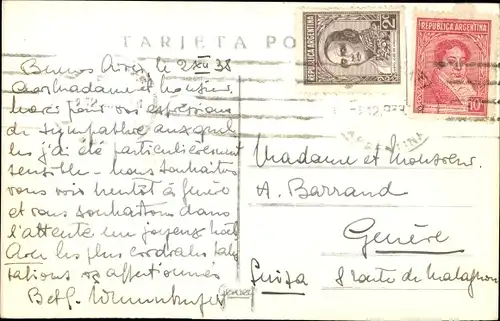 TARJETA PO
REPUBLICA ARGENTINA
REPUBLICA ARGENTINA
10
Buenos Aires le 2 XII 38
Madame et Monsieur
pour vos expressions
de sympathie auxquel
les j'ai été particulièrement
sensible - nous souhaitons
vous voir bientôt à
et vous souhaitons dans
l'attente un joyeux
les plus cordiales salu
tations
Madame et Monsieur
A. Barraud
Genève
Suiza 8 route de Malagnou